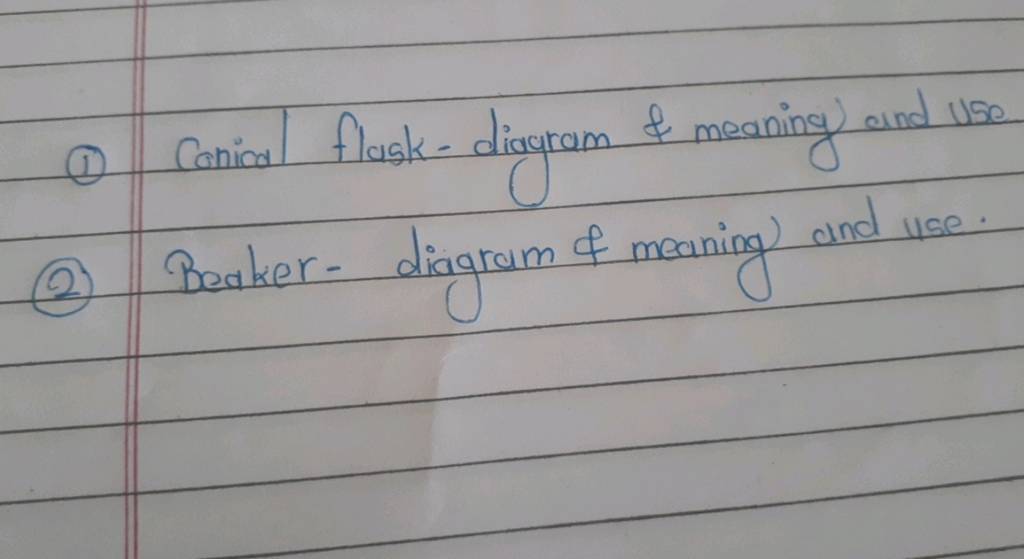 ① Conical flask - diagram & meaning and use
② Beaker - diagram & meaning and use.